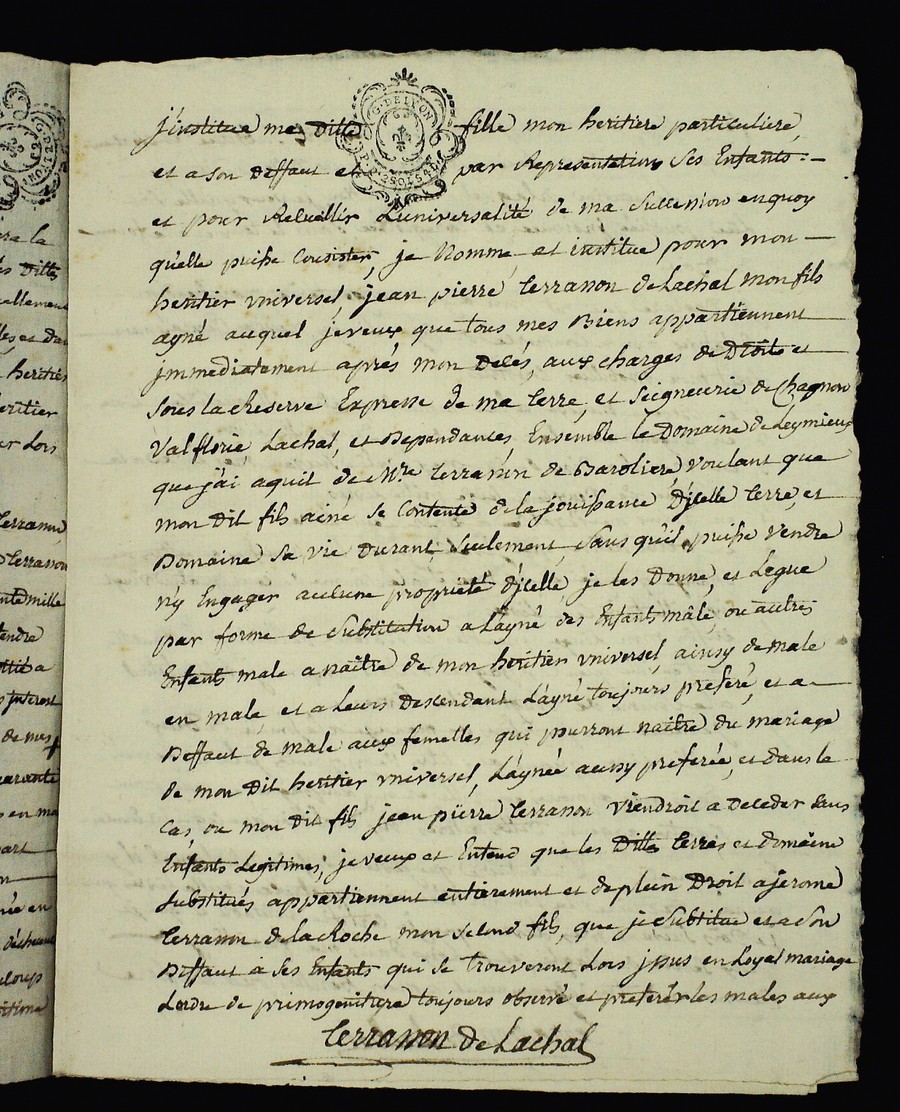 j'institue ma ditte fille mon heritiere particuliere,
et a son deffaut et par Representation ses Enfants. —
et pour Recüeillir Luniversalité de ma succession enquoy
quelle puisse Consister, je Nomme et institue pour mon —
heritier universel, jean pierre terrasson deLachal mon fils
ayné auquel jeveux que tous mes Biens appartiennent
jmmediatement aprés mon decés, aux charges de Droits et
sous la Reserve Expresse de ma terre, et seigneurie de Chagnon
Valflorie, Lachal, et dependances Ensemble le Domaine de Leymieux
que j'ai aquit de Mre terrasson de Baroliere, voulant que
mon dit fils ainé se Contente de la jouissance D'jcelle terre, et
Domaine sa vie durant seulement sans qu'il puisse vendre
n'y Engager aucune proprieté d'jcelle, je les Donne, et Legue
par forme de substitution a L'ayné des Enfants mâle, ou autres
Enfants male a naître de mon heritier universel, ainsy de male
en male, et a Leurs descendant L'ayné toujours preferé, et a —
deffaut de male aux femelles qui pourront naître du mariage
de mon Dit heritier universel, L'aynée aussy preferée, et dans le
Cas, ou mon dit fils jean pierre terrasson viendroit a deceder sans
Enfants Legitimes, jeveux et Entend que les Dittes terres et domaine
substitués appartiennent entierement et de plein Droit a jerome
terrasson de la Roche mon second fils, que je substitue et a son
Deffaut à ses Enfants qui se trouveront Lors jssus en Loyal mariage
Lordre de primogeniture toujours observé et preferer les males aux
terrasson de Lachal
G. DE LYON
ra la
es dittes
cellement
heritier
eritier
er Lors
terrasson
terrasson
nte mille
tendre
jnterest
de mes
en ma
part
née en
Loup